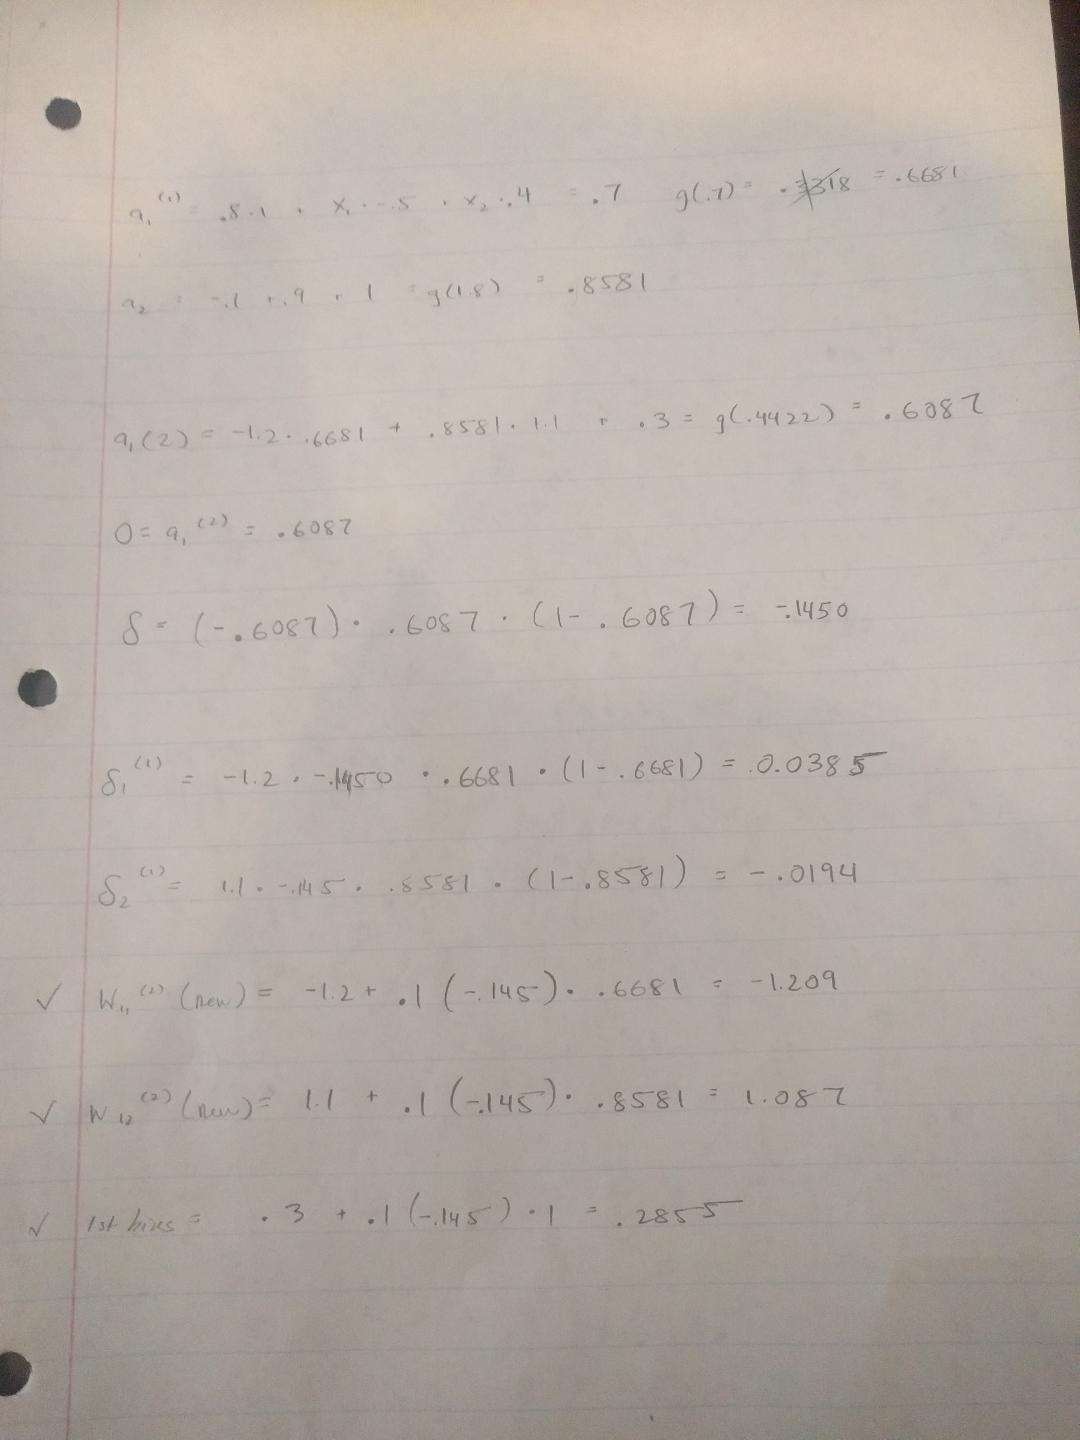 a₁⁽¹⁾ = .8·1 + x₁·-.5 + x₂·.4 = .7 g(.7) = = .6681
a₂ = -.1 + .9 + 1 = g(1.8) = .8581
a₁(2) = -1.2·.6681 + .8581·1.1 + .3 = g(.4422) = .6087
O = a₁⁽²⁾ = .6087
δ = (-.6087)·.6087·(1-.6087) = -.1450
δ₁⁽¹⁾ = -1.2·-.1450·.6681·(1-.6681) = 0.0385
δ₂⁽¹⁾ = 1.1·-.145·.8581·(1-.8581) = -.0194
✓ W₁₁⁽²⁾ (new) = -1.2 + .1(-.145)·.6681 = -1.209
✓ W₁₂⁽²⁾ (new) = 1.1 + .1(-.145)·.8581 = 1.087
✓ 1st bias = .3 + .1(-.145)·1 = .2855